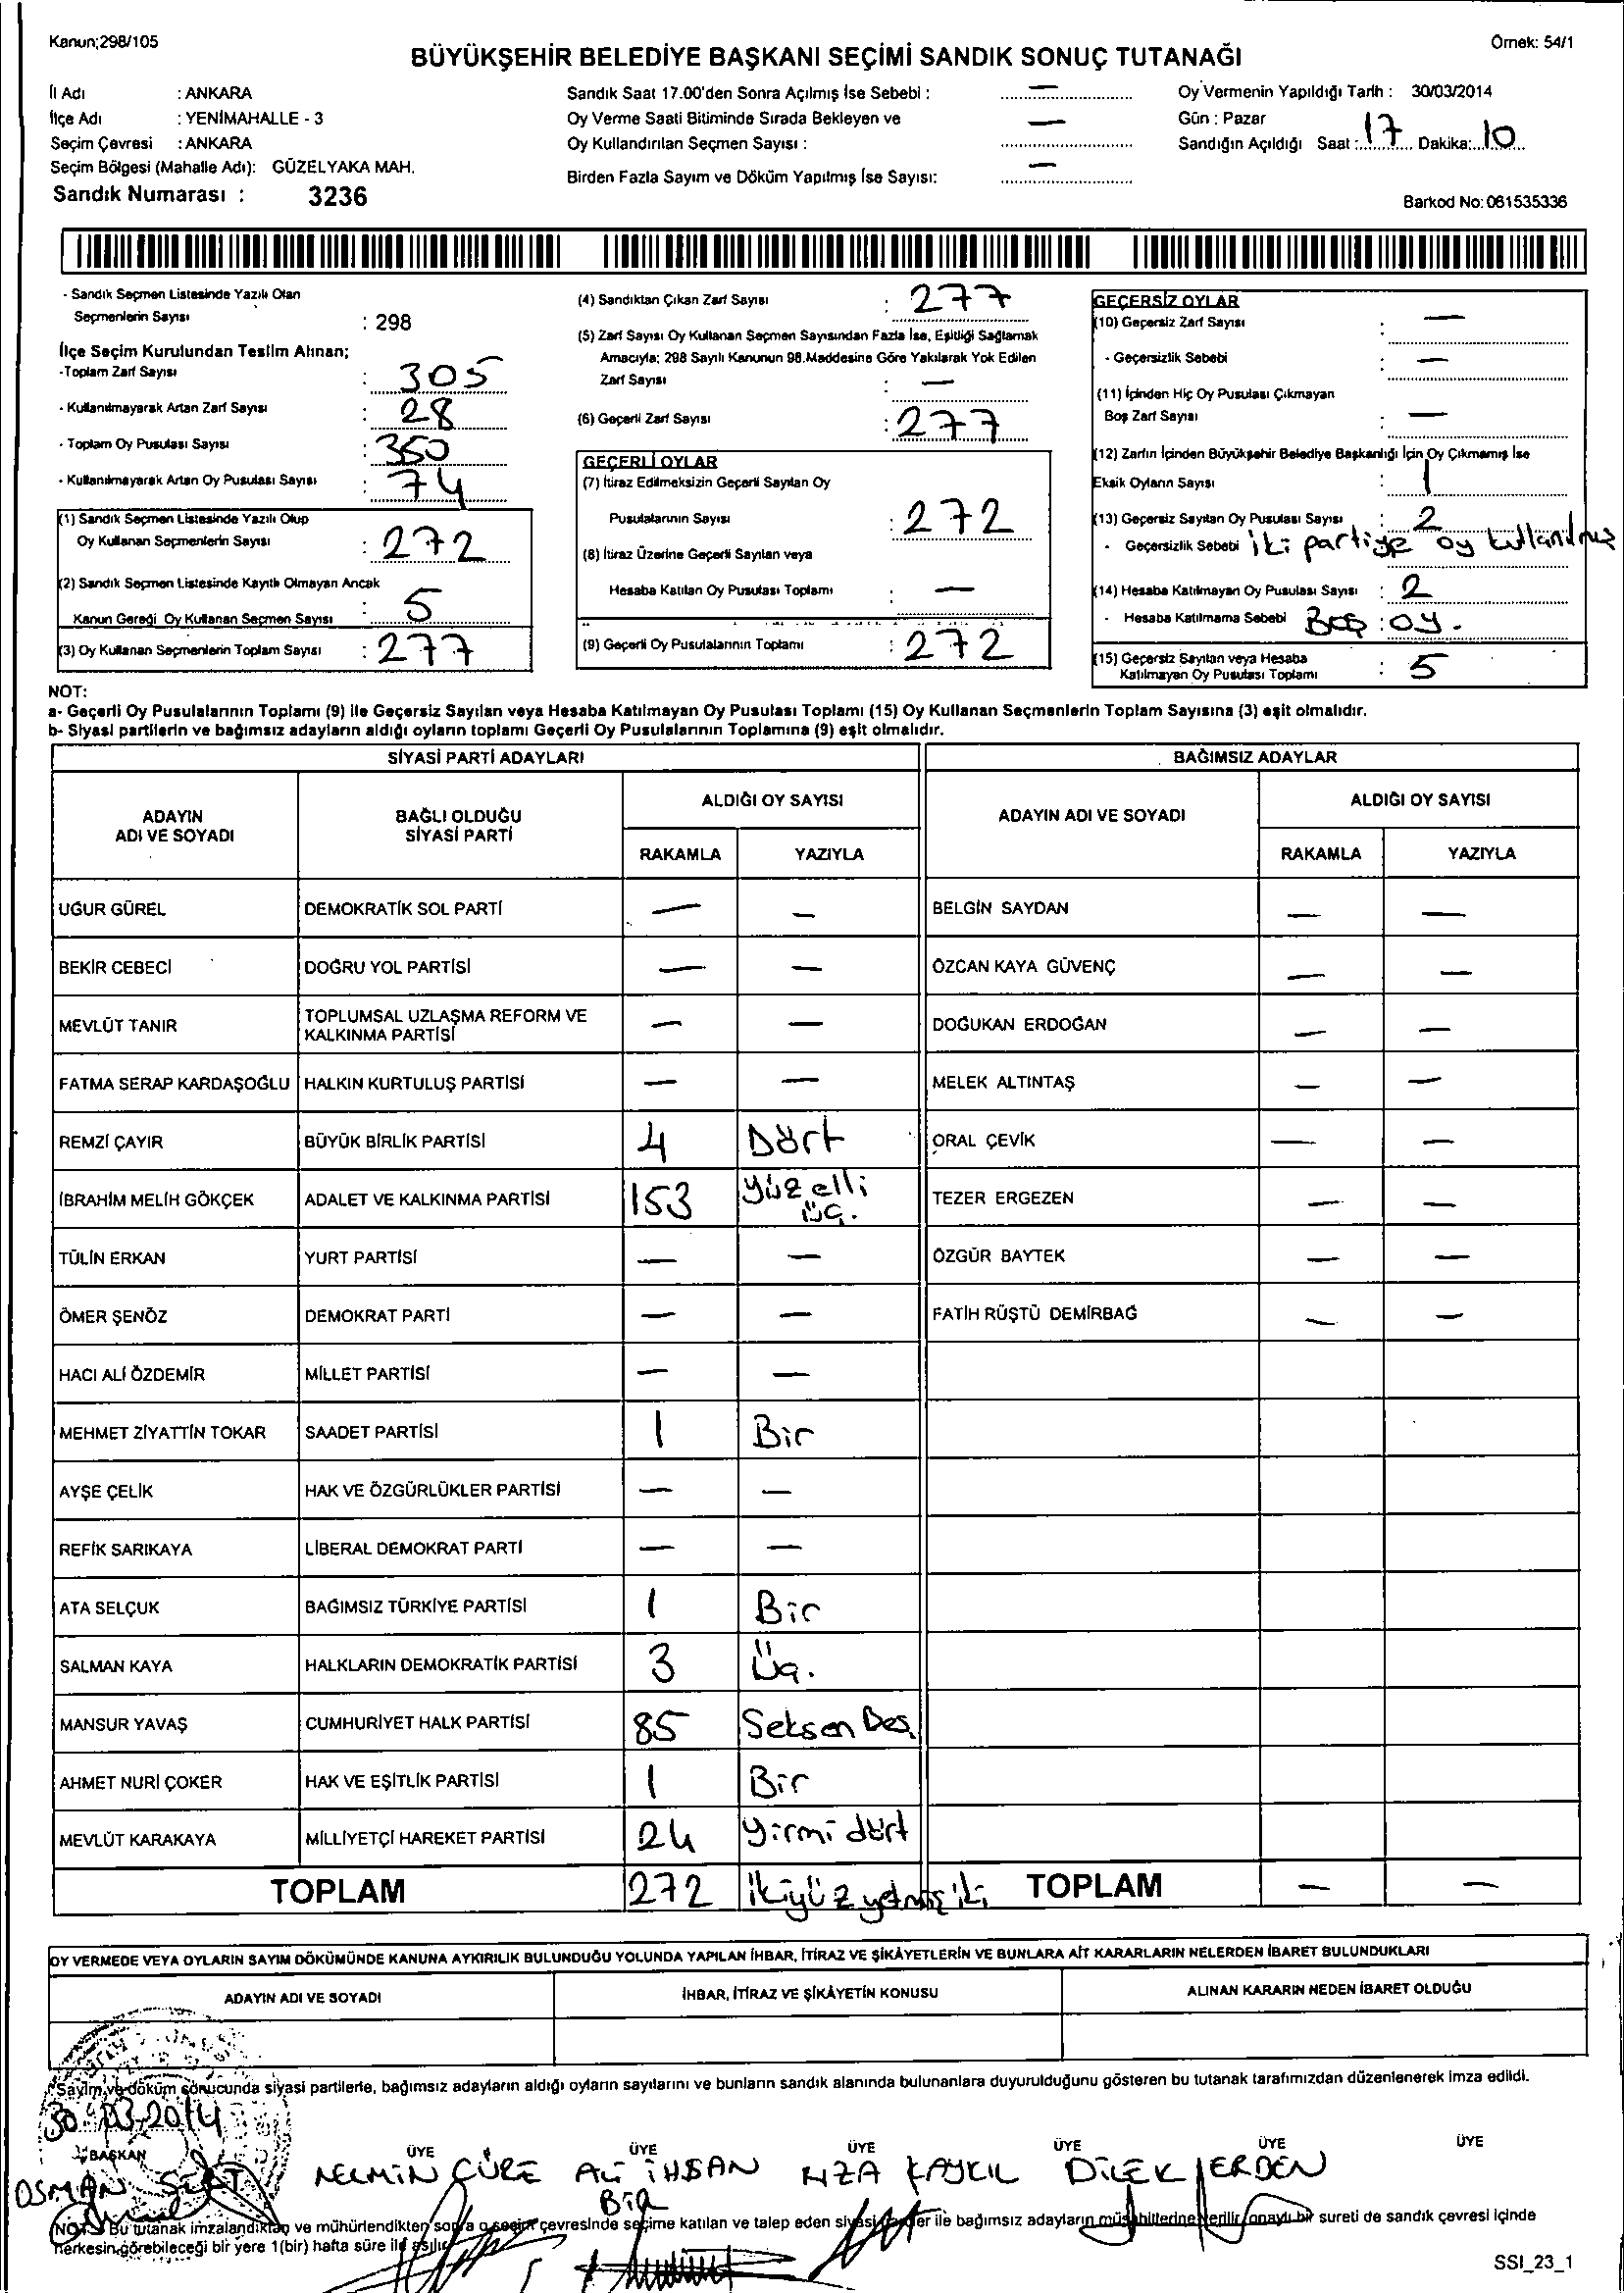 Kanun;298/105
Örnek: 54/1
BÜYÜKŞEHİR BELEDİYE BAŞKANI SEÇİMİ SANDIK SONUÇ TUTANAĞI
İl Adı : ANKARA
İlçe Adı : YENİMAHALLE - 3
Seçim Çevresi : ANKARA
Seçim Bölgesi (Mahalle Adı): GÜZELYAKA MAH.
Sandık Numarası : 3236
Sandık Saat 17.00'den Sonra Açılmış İse Sebebi : —
Oy Verme Saati Bitiminde Sırada Bekleyen ve
Oy Kullandırılan Seçmen Sayısı : —
Birden Fazla Sayım ve Döküm Yapılmış İse Sayısı: —
Oy Vermenin Yapıldığı Tarih : 30/03/2014
Gün : Pazar
Sandığın Açıldığı Saat : 17 Dakika: 10
Barkod No: 061535336
- Sandık Seçmen Listesinde Yazılı Olan
Seçmenlerin Sayısı : 298
İlçe Seçim Kurulundan Teslim Alınan;
-Toplam Zarf Sayısı : 305
- Kullanılmayarak Artan Zarf Sayısı : 28
- Toplam Oy Pusulası Sayısı : 350
- Kullanılmayarak Artan Oy Pusulası Sayısı : 74
(1) Sandık Seçmen Listesinde Yazılı Olup
Oy Kullanan Seçmenlerin Sayısı : 272
(2) Sandık Seçmen Listesinde Kayıtlı Olmayan Ancak
Kanun Gereği Oy Kullanan Seçmen Sayısı : 5
(3) Oy Kullanan Seçmenlerin Toplam Sayısı : 277
(4) Sandıktan Çıkan Zarf Sayısı : 277
(5) Zarf Sayısı Oy Kullanan Seçmen Sayısından Fazla İse, Eşitliği Sağlamak
Amacıyla; 298 Sayılı Kanunun 98.Maddesine Göre Yakılarak Yok Edilen
Zarf Sayısı : —
(6) Geçerli Zarf Sayısı : 277
GEÇERLİ OYLAR
(7) İtiraz Edilmeksizin Geçerli Sayılan Oy
Pusulalarının Sayısı : 272
(8) İtiraz Üzerine Geçerli Sayılan veya
Hesaba Katılan Oy Pusulası Toplamı : —
(9) Geçerli Oy Pusulalarının Toplamı : 272
GEÇERSİZ OYLAR
(10) Geçersiz Zarf Sayısı : —
- Geçersizlik Sebebi : —
(11) İçinden Hiç Oy Pusulası Çıkmayan
Boş Zarf Sayısı : —
(12) Zarfın İçinden Büyükşehir Belediye Başkanlığı İçin Oy Çıkmamış İse
Eksik Oyların Sayısı : 1
(13) Geçersiz Sayılan Oy Pusulası Sayısı : 2
- Geçersizlik Sebebi iki partiye oy kullanılmış
(14) Hesaba Katılmayan Oy Pusulası Sayısı : 2
- Hesaba Katılmama Sebebi Boş : oy.
(15) Geçersiz Sayılan veya Hesaba
Katılmayan Oy Pusulası Toplamı : 5
NOT:
a- Geçerli Oy Pusulalarının Toplamı (9) ile Geçersiz Sayılan veya Hesaba Katılmayan Oy Pusulası Toplamı (15) Oy Kullanan Seçmenlerin Toplam Sayısına (3) eşit olmalıdır.
b- Siyasi partilerin ve bağımsız adayların aldığı oyların toplamı Geçerli Oy Pusulalarının Toplamına (9) eşit olmalıdır.
SİYASİ PARTİ ADAYLARI BAĞIMSIZ ADAYLAR
ADAYIN ADI VE SOYADI BAĞLI OLDUĞU SİYASİ PARTİ ALDIĞI OY SAYISI ADAYIN ADI VE SOYADI ALDIĞI OY SAYISI
RAKAMLA YAZIYLA RAKAMLA YAZIYLA
UĞUR GÜREL DEMOKRATİK SOL PARTİ — — BELGİN SAYDAN — —
BEKİR CEBECİ DOĞRU YOL PARTİSİ — — ÖZCAN KAYA GÜVENÇ — —
MEVLÜT TANIR TOPLUMSAL UZLAŞMA REFORM VE KALKINMA PARTİSİ — — DOĞUKAN ERDOĞAN — —
FATMA SERAP KARDAŞOĞLU HALKIN KURTULUŞ PARTİSİ — — MELEK ALTINTAŞ — —
REMZİ ÇAYIR BÜYÜK BİRLİK PARTİSİ 4 Dört ORAL ÇEVİK — —
İBRAHİM MELİH GÖKÇEK ADALET VE KALKINMA PARTİSİ 153 Yüz elli üç. TEZER ERGEZEN — —
TÜLİN ERKAN YURT PARTİSİ — — ÖZGÜR BAYTEK — —
ÖMER ŞENÖZ DEMOKRAT PARTİ — — FATİH RÜŞTÜ DEMİRBAĞ — —
HACI ALİ ÖZDEMİR MİLLET PARTİSİ — —
MEHMET ZİYATTİN TOKAR SAADET PARTİSİ 1 Bir
AYŞE ÇELİK HAK VE ÖZGÜRLÜKLER PARTİSİ — —
REFİK SARIKAYA LİBERAL DEMOKRAT PARTİ — —
ATA SELÇUK BAĞIMSIZ TÜRKİYE PARTİSİ 1 Bir
SALMAN KAYA HALKLARIN DEMOKRATİK PARTİSİ 3 Üç.
MANSUR YAVAŞ CUMHURİYET HALK PARTİSİ 85 Seksen Beş
AHMET NURİ ÇOKER HAK VE EŞİTLİK PARTİSİ 1 Bir
MEVLÜT KARAKAYA MİLLİYETÇİ HAREKET PARTİSİ 24 Yirmi dört
TOPLAM 272 İkiyüz yetmiş iki TOPLAM — —
OY VERMEDE VEYA OYLARIN SAYIM DÖKÜMÜNDE KANUNA AYKIRILIK BULUNDUĞU YOLUNDA YAPILAN İHBAR, İTİRAZ VE ŞİKÂYETLERİN VE BUNLARA AİT KARARLARIN NELERDEN İBARET BULUNDUKLARI
ADAYIN ADI VE SOYADI İHBAR, İTİRAZ VE ŞİKÂYETİN KONUSU ALINAN KARARIN NEDEN İBARET OLDUĞU
Sayım ve döküm sonucunda siyasi partilerle, bağımsız adayların aldığı oyların sayılarını ve bunların sandık alanında bulunanlara duyurulduğunu gösteren bu tutanak tarafımızdan düzenlenerek imza edildi.
30.03.2014
BAŞKAN ÜYE ÜYE ÜYE ÜYE ÜYE ÜYE
OSMAN NERMİN CÜRE ALİ İHSAN BİR RIZA DİLEK ERDEN
(NOT: Bu tutanak imzalandıktan ve mühürlendikten sonra o seçim çevresinde seçime katılan ve talep eden siyasi partiler ile bağımsız adayların müşahitlerine verilir, onaylı bir sureti de sandık çevresi içinde
herkesin görebileceği bir yere 1(bir) hafta süre ile asılır.
SSI_23_1